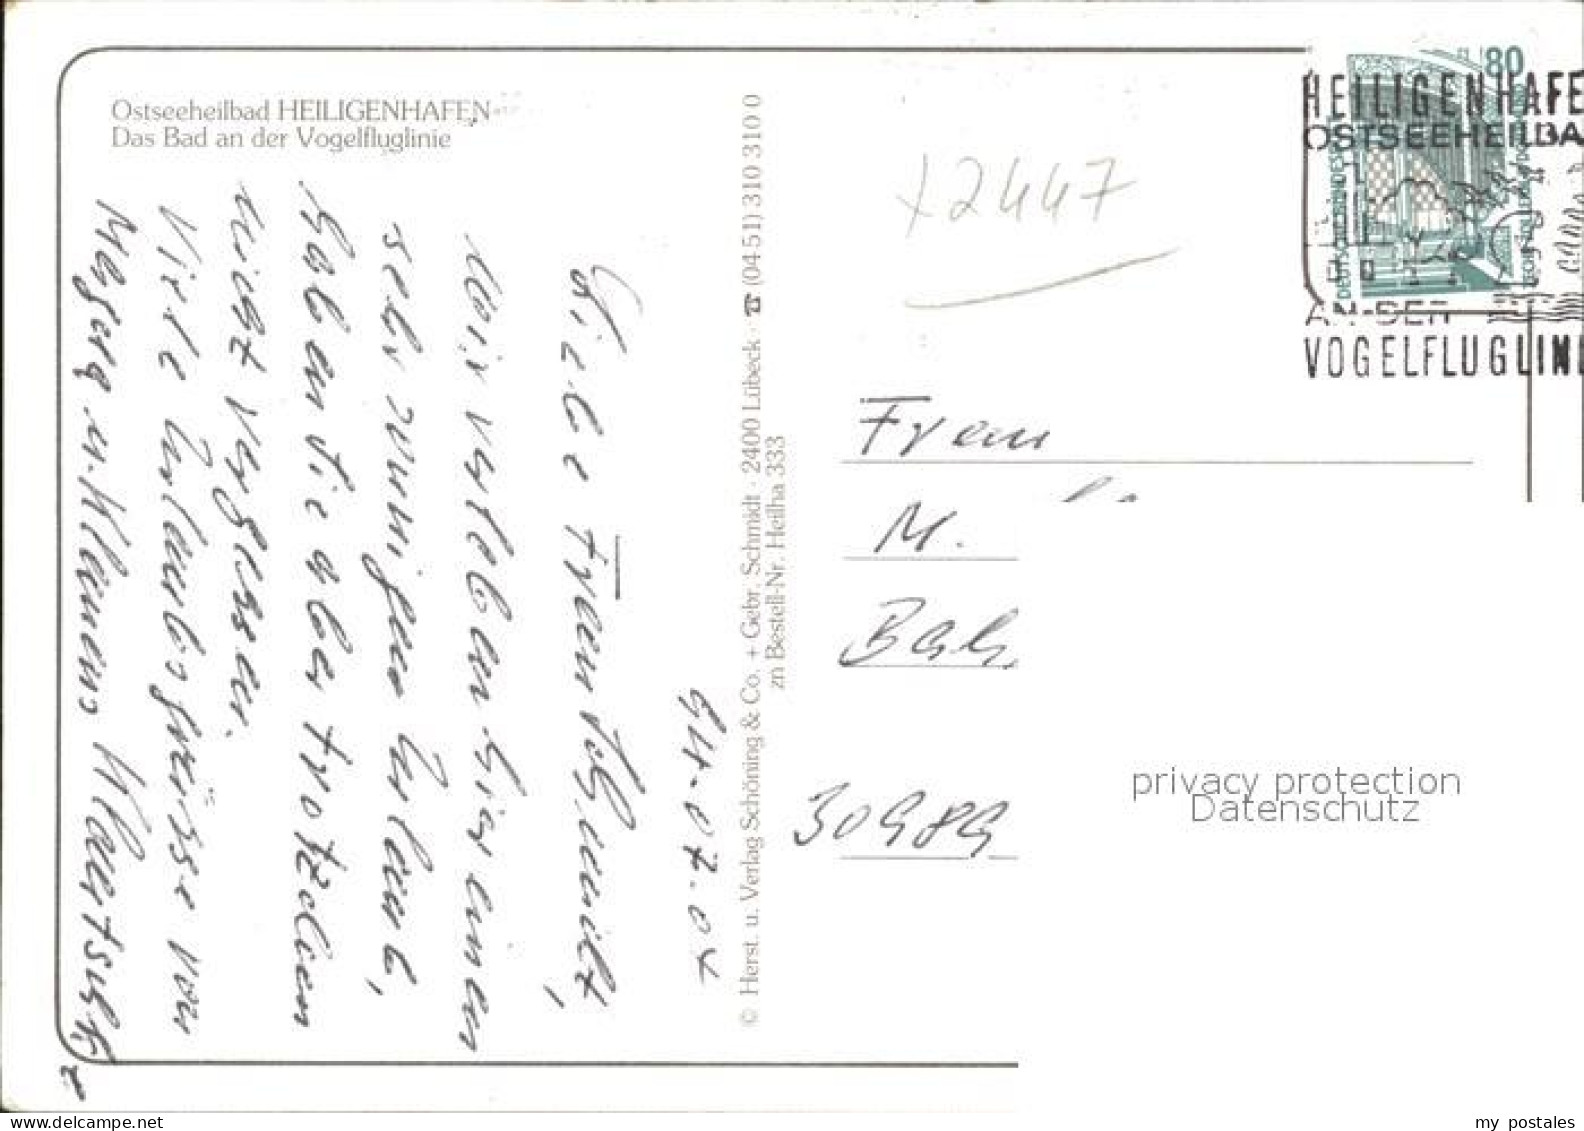 Ostseeheilbad HEILIGENHAFEN
Das Bad an der Vogelfluglinie
Liebe Frau Schmidt,
wir verleben hier einen
sehr sonnigen Urlaub,
haben Sie aber trotzdem
nicht vergessen.
Viele Urlaubsgrüsse von
u. Klemens
© Herst. u. Verlag Schöning & Co. + Gebr. Schmidt · 2400 Lübeck · ☎ (04 51) 310 310 0
zn Bestell-Nr. Heilha 333
X2447
80
DEUTSCHE BUNDESPOST
HEILIGENHAFE
OSTSEEHEILBA
AN·DER
VOGELFLUGLINI
Frau
M.
30989
privacy protection
Datenschutz
my postales